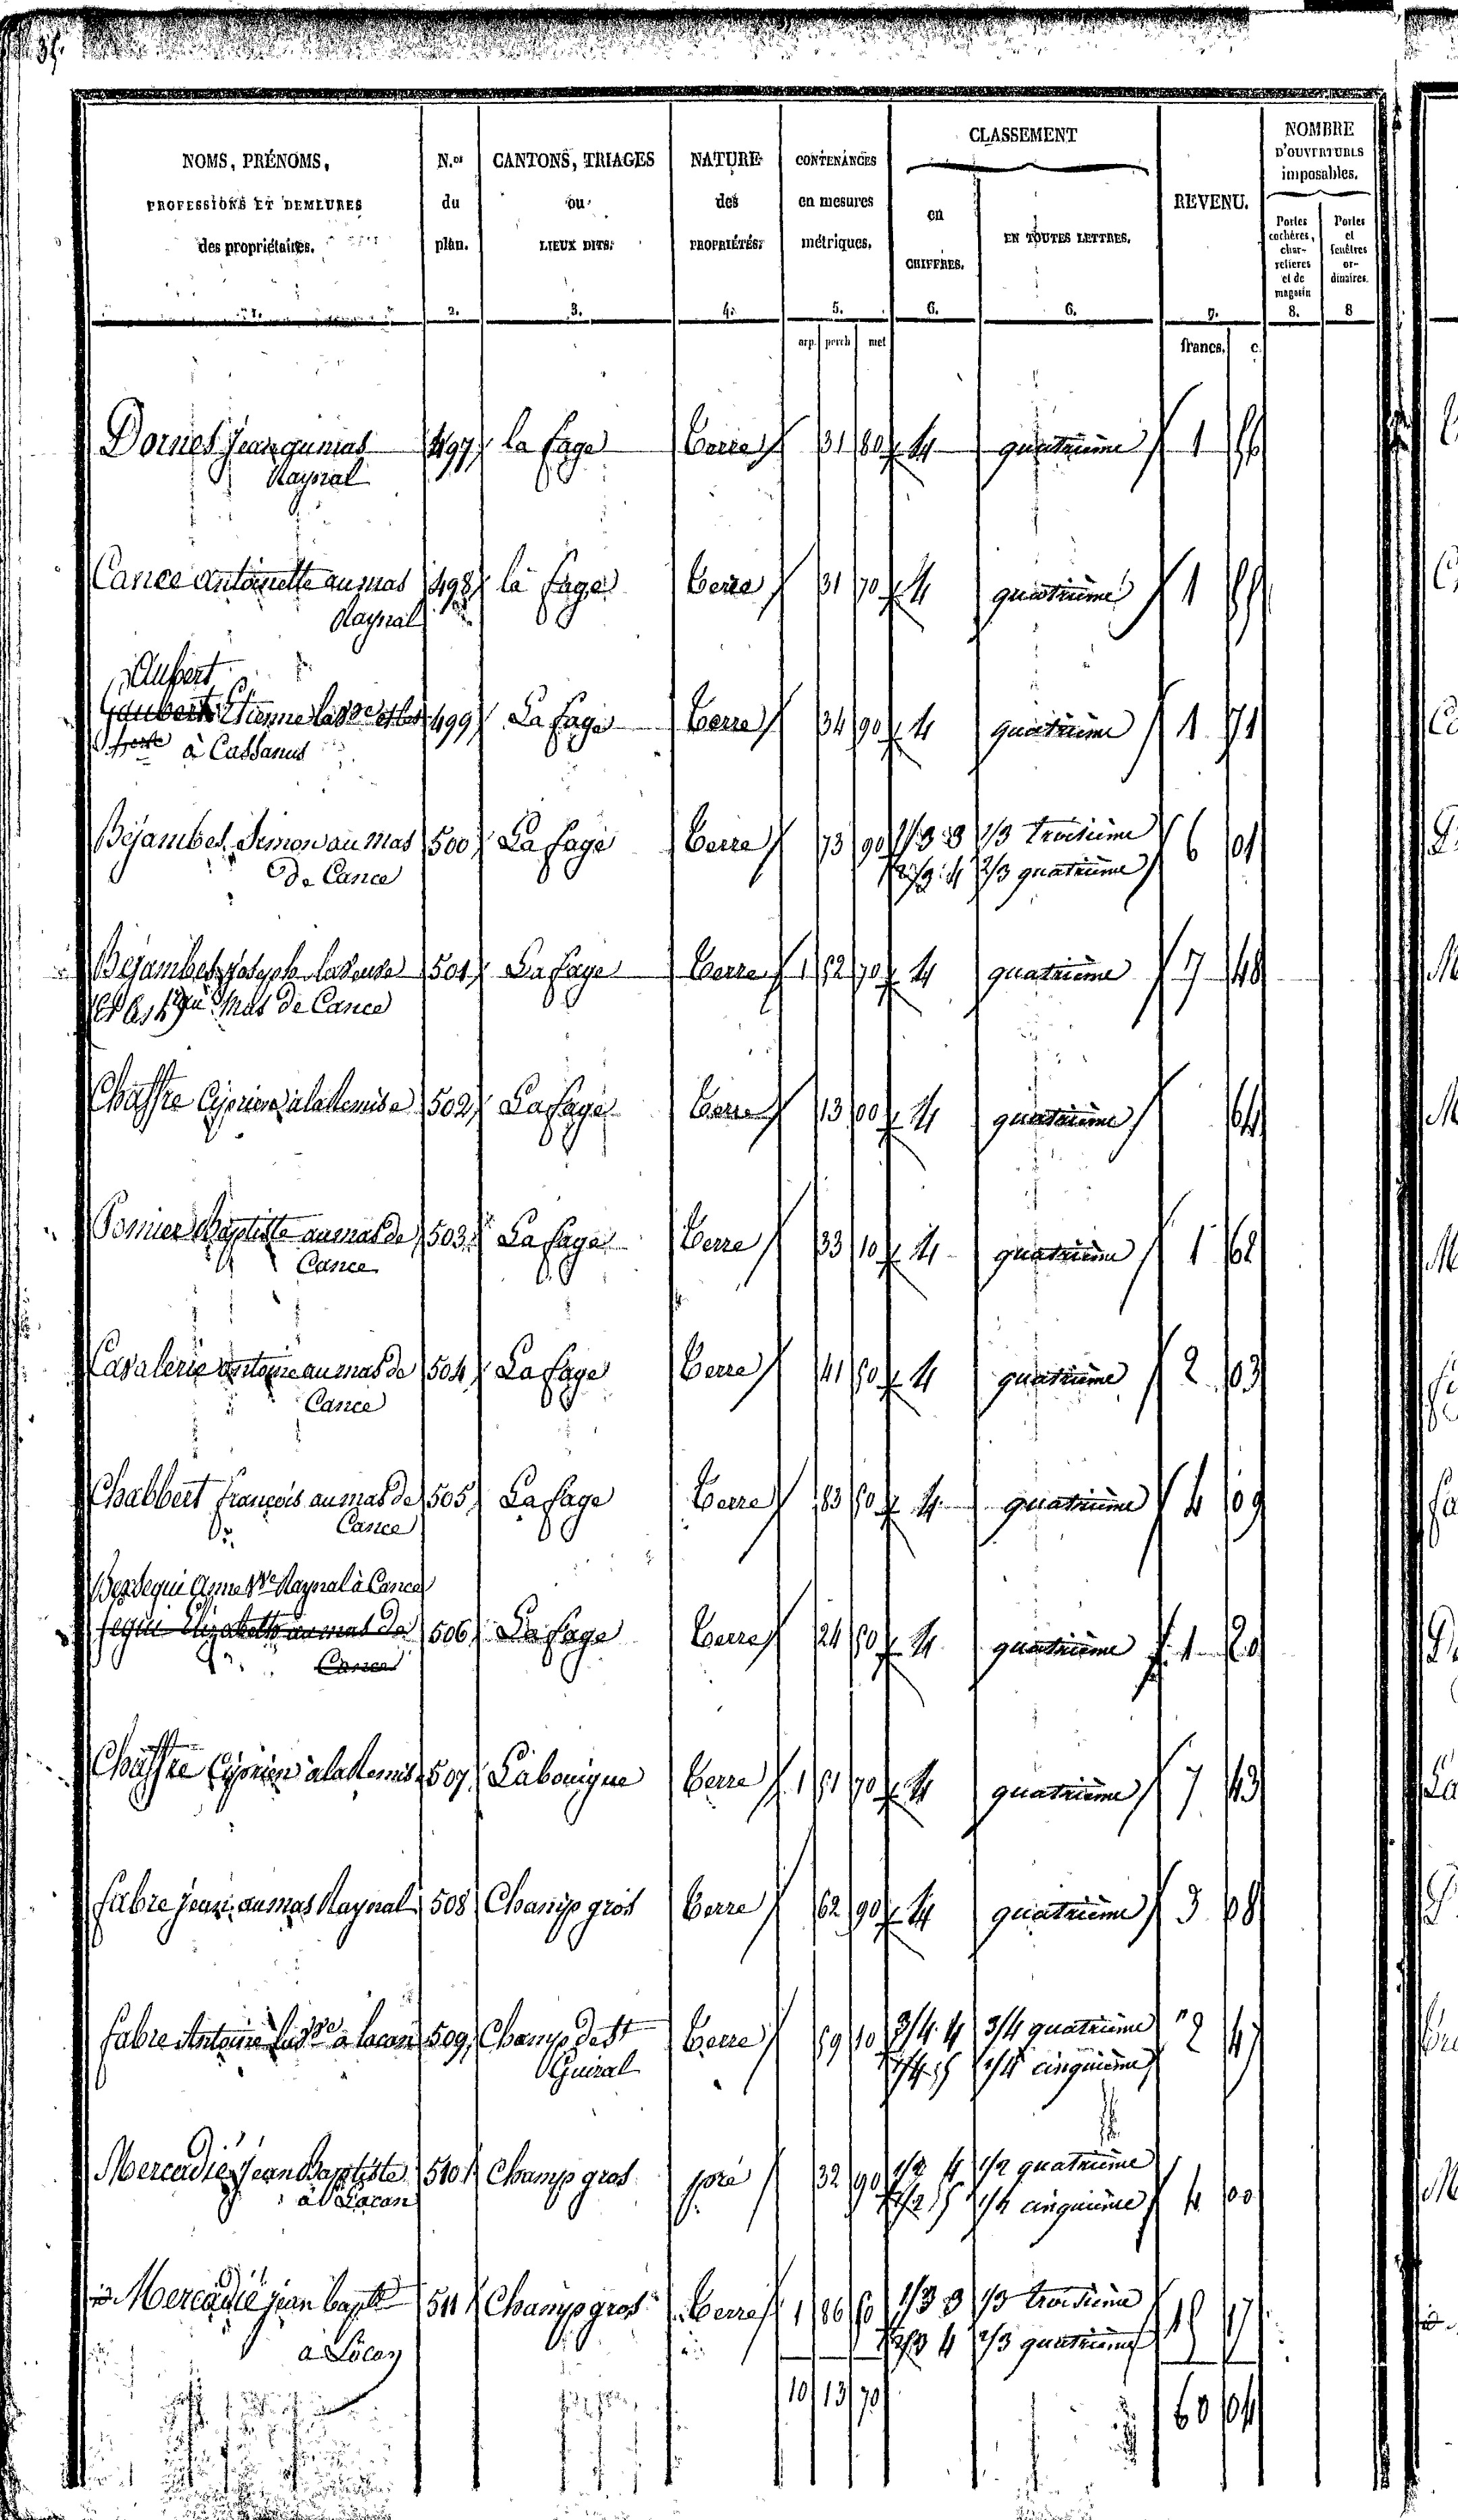 35.
NOMS, PRÉNOMS,
PROFESSIONS ET DEMEURES
des propriétaires.
1.
N.os
du
plan.
2.
CANTONS, TRIAGES
ou
LIEUX DITS.
3.
NATURE
des
PROPRIÉTÉS.
4.
CONTENANCES
en mesures
métriques.
5.
arp. perch met
CLASSEMENT
en
CHIFFRES.
6.
EN TOUTES LETTRES.
6.
REVENU.
7.
francs. c.
NOMBRE
D'OUVERTURES
imposables.
Portes
cochères,
char-
retières
et de
magasin
8.
Portes
et
fenêtres
or-
dinaires.
8
Dornes Jean au mas 497 la fage terre 31 80 4 quatrième 1 56
Raynal
Cance Antoinette au mas 498 la fage terre 31 70 4 quatrième 1 55
Raynal
Aubert
Gaubert Etienne 499 La fage terre 34 90 4 quatrième 1 71
à Cassanus
Béjambes Simon au Mas 500 La fage terre 73 90 1/3 3 1/3 troisième 6 01
de Cance 2/3 4 2/3 quatrième
Béjambes Joseph la veuve 501 La fage terre 1 52 70 4 quatrième 7 48
au Mas de Cance
Chaffre Ciprien à la Remise 502 La fage terre 13 00 4 quatrième 64
Pomier Baptiste au mas de 503 La fage terre 33 10 4 quatrième 1 62
Cance
Cavalerie Antoine au mas de 504 La fage terre 41 50 4 quatrième 2 03
Cance
Chabbert françois au mas de 505 La fage terre 83 50 4 quatrième 4 09
Cance
Anne Vve Raynal à Cance
Segui Elizabeth au mas de 506 La fage terre 24 50 4 quatrième 1 20
Cance
Chaffre Ciprien à la Remise 507 Labouigue terre 1 51 70 4 quatrième 7 43
fabre jean au mas Raynal 508 Champ gros terre 62 90 4 quatrième 3 08
fabre Antoine à lacan 509 Champ de St terre 59 10 3/4 4 3/4 quatrième 2 47
Guiral 1/4 5 1/4 cinquième
Mercadié Jean Baptiste 510 Champ gros pré 32 90 1/2 4 1/2 quatrième 4 00
à Lacan 1/2 5 1/2 cinquième
Mercadié jean bapte 511 Champ gros terre 1 86 50 1/3 3 1/3 troisième 15 17
à Lacan 2/3 4 2/3 quatrième
10 13 70 60 04